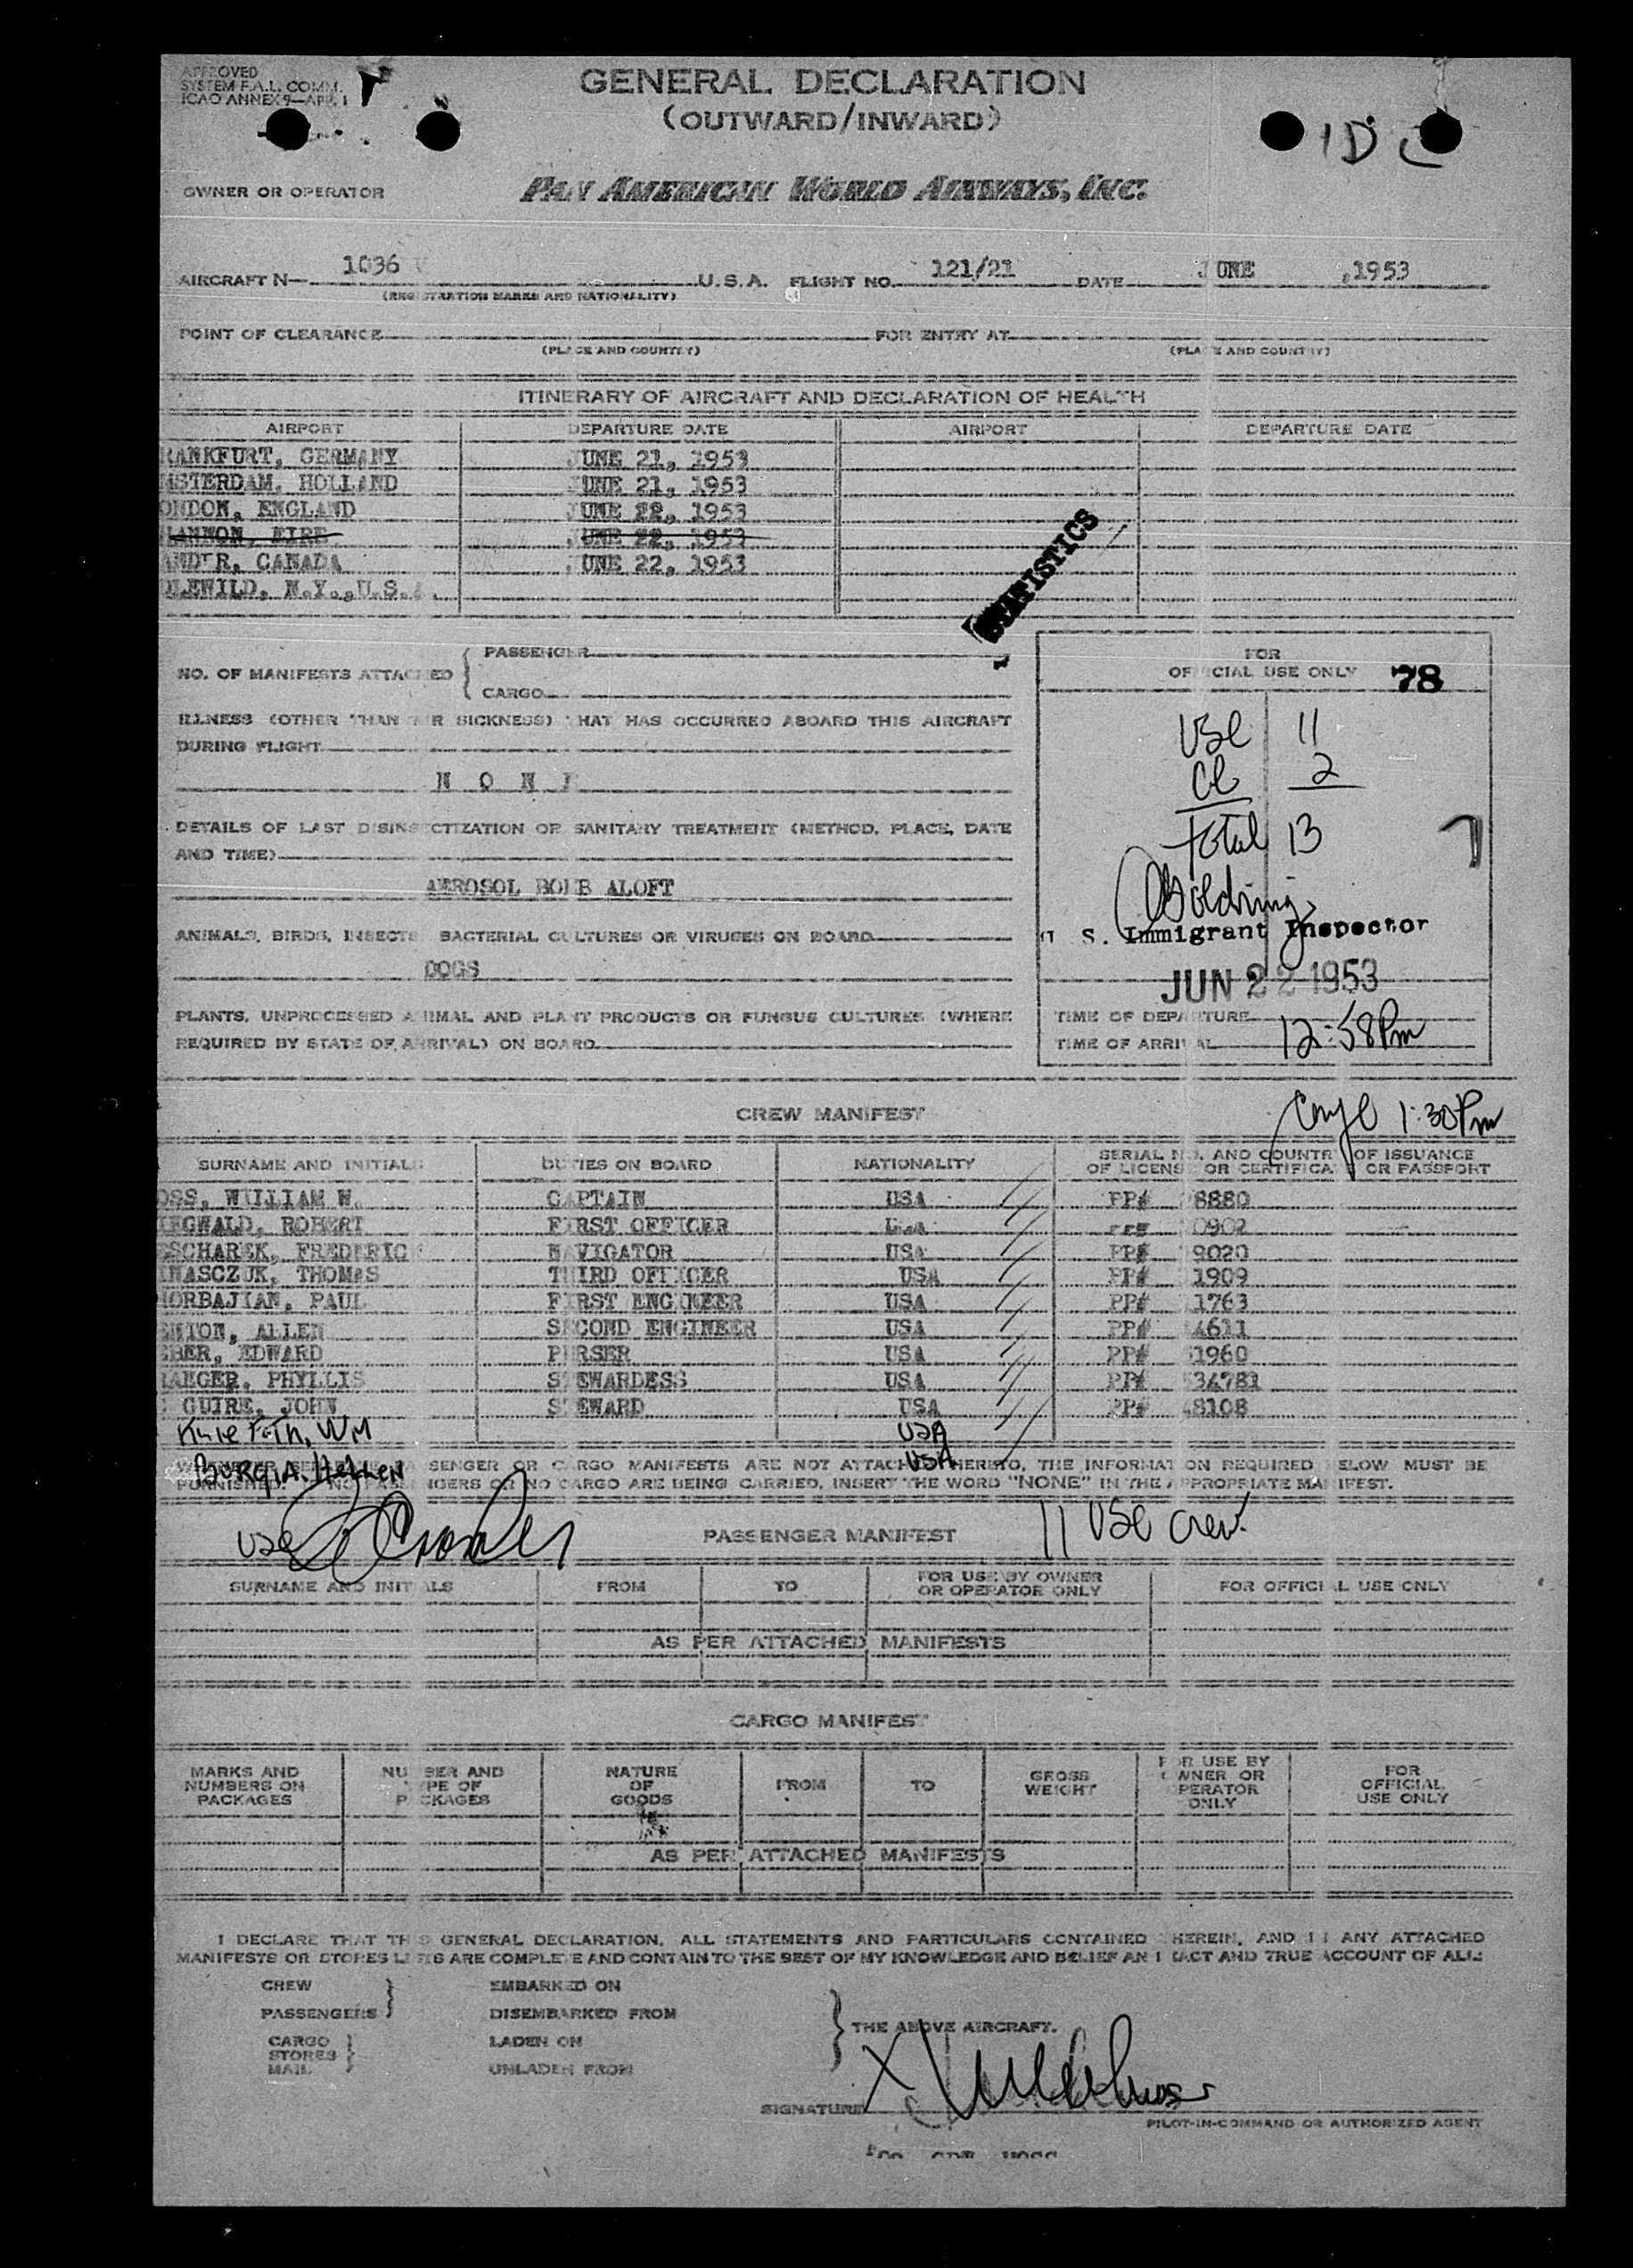 APPROVED
SYSTEM F.A.L. COMM.
ICAO ANNEX 9—APP. 1
GENERAL DECLARATION
(OUTWARD/INWARD)
OWNER OR OPERATOR PAN AMERICAN WORLD AIRWAYS, INC.
AIRCRAFT N— 1036 V U.S.A. FLIGHT NO. 121/21 DATE JUNE ,1953
(REGISTRATION MARKS AND NATIONALITY)
POINT OF CLEARANCE FOR ENTRY AT
(PLACE AND COUNTRY) (PLACE AND COUNTRY)
ITINERARY OF AIRCRAFT AND DECLARATION OF HEALTH
AIRPORT DEPARTURE DATE AIRPORT DEPARTURE DATE
RANKFURT, GERMANY JUNE 21, 1953
MSTERDAM, HOLLAND JUNE 21, 1953
ONDON, ENGLAND JUNE 22, 1953
HANNON, EIRE JUNE 22, 1953
ANDER, CANADA JUNE 22, 1953
DLEWILD, N.Y., U.S.A.
STATISTICS
NO. OF MANIFESTS ATTACHED PASSENGER
CARGO
FOR
OFFICIAL USE ONLY 78
ILLNESS (OTHER THAN AIR SICKNESS) THAT HAS OCCURRED ABOARD THIS AIRCRAFT
DURING FLIGHT
N O N E
USC 11
CC 2
Total 13
DETAILS OF LAST DISINSECTIZATION OR SANITARY TREATMENT (METHOD, PLACE, DATE
AND TIME)
AEROSOL BOMB ALOFT
Goldring
U S. Immigrant Inspector
ANIMALS, BIRDS, INSECTS, BACTERIAL CULTURES OR VIRUSES ON BOARD
DOGS
JUN 22 1953
PLANTS, UNPROCESSED ANIMAL AND PLANT PRODUCTS OR FUNGUS CULTURES (WHERE
REQUIRED BY STATE OF ARRIVAL) ON BOARD
TIME OF DEPARTURE
TIME OF ARRIVAL 12:58 Pm
CREW MANIFEST
1:30 Pm
SURNAME AND INITIALS DUTIES ON BOARD NATIONALITY SERIAL NO. AND COUNTRY OF ISSUANCE
OF LICENSE OR CERTIFICATE OR PASSPORT
OSS, WILLIAM W. CAPTAIN USA PP# 8880
EGWALD, ROBERT FIRST OFFICER USA PP# 0902
ESCHAREK, FREDERIC NAVIGATOR USA PP# 9020
NASCZUK, THOMAS THIRD OFFICER USA PP# 1909
HORBAJIAN, PAUL FIRST ENGINEER USA PP# 1763
ENTON, ALLEN SECOND ENGINEER USA PP# 4611
BER, EDWARD PURSER USA PP# 1960
AEGER, PHYLLIS STEWARDESS USA PP# 34781
GUIRE, JOHN STEWARD USA PP# 8108
WM USA
HELLEN USA
SENGER OR CARGO MANIFESTS ARE NOT ATTACHED HERETO, THE INFORMATION REQUIRED BELOW MUST BE
FURNISHED. IF NO PASSENGERS OR NO CARGO ARE BEING CARRIED, INSERT THE WORD "NONE" IN THE APPROPRIATE MANIFEST.
USC
PASSENGER MANIFEST 11 USC crew
SURNAME AND INITIALS FROM TO FOR USE BY OWNER
OR OPERATOR ONLY FOR OFFICIAL USE ONLY
AS PER ATTACHED MANIFESTS
CARGO MANIFEST
MARKS AND
NUMBERS ON
PACKAGES NUMBER AND
TYPE OF
PACKAGES NATURE
OF
GOODS FROM TO GROSS
WEIGHT FOR USE BY
OWNER OR
OPERATOR
ONLY FOR
OFFICIAL
USE ONLY
AS PER ATTACHED MANIFESTS
I DECLARE THAT THIS GENERAL DECLARATION, ALL STATEMENTS AND PARTICULARS CONTAINED THEREIN, AND IN ANY ATTACHED
MANIFESTS OR STORES LISTS ARE COMPLETE AND CONTAIN TO THE BEST OF MY KNOWLEDGE AND BELIEF AN EXACT AND TRUE ACCOUNT OF ALL:
CREW EMBARKED ON
PASSENGERS DISEMBARKED FROM
THE ABOVE AIRCRAFT.
CARGO LADEN ON
STORES
MAIL UNLADEN FROM
SIGNATURE X
PILOT-IN-COMMAND OR AUTHORIZED AGENT